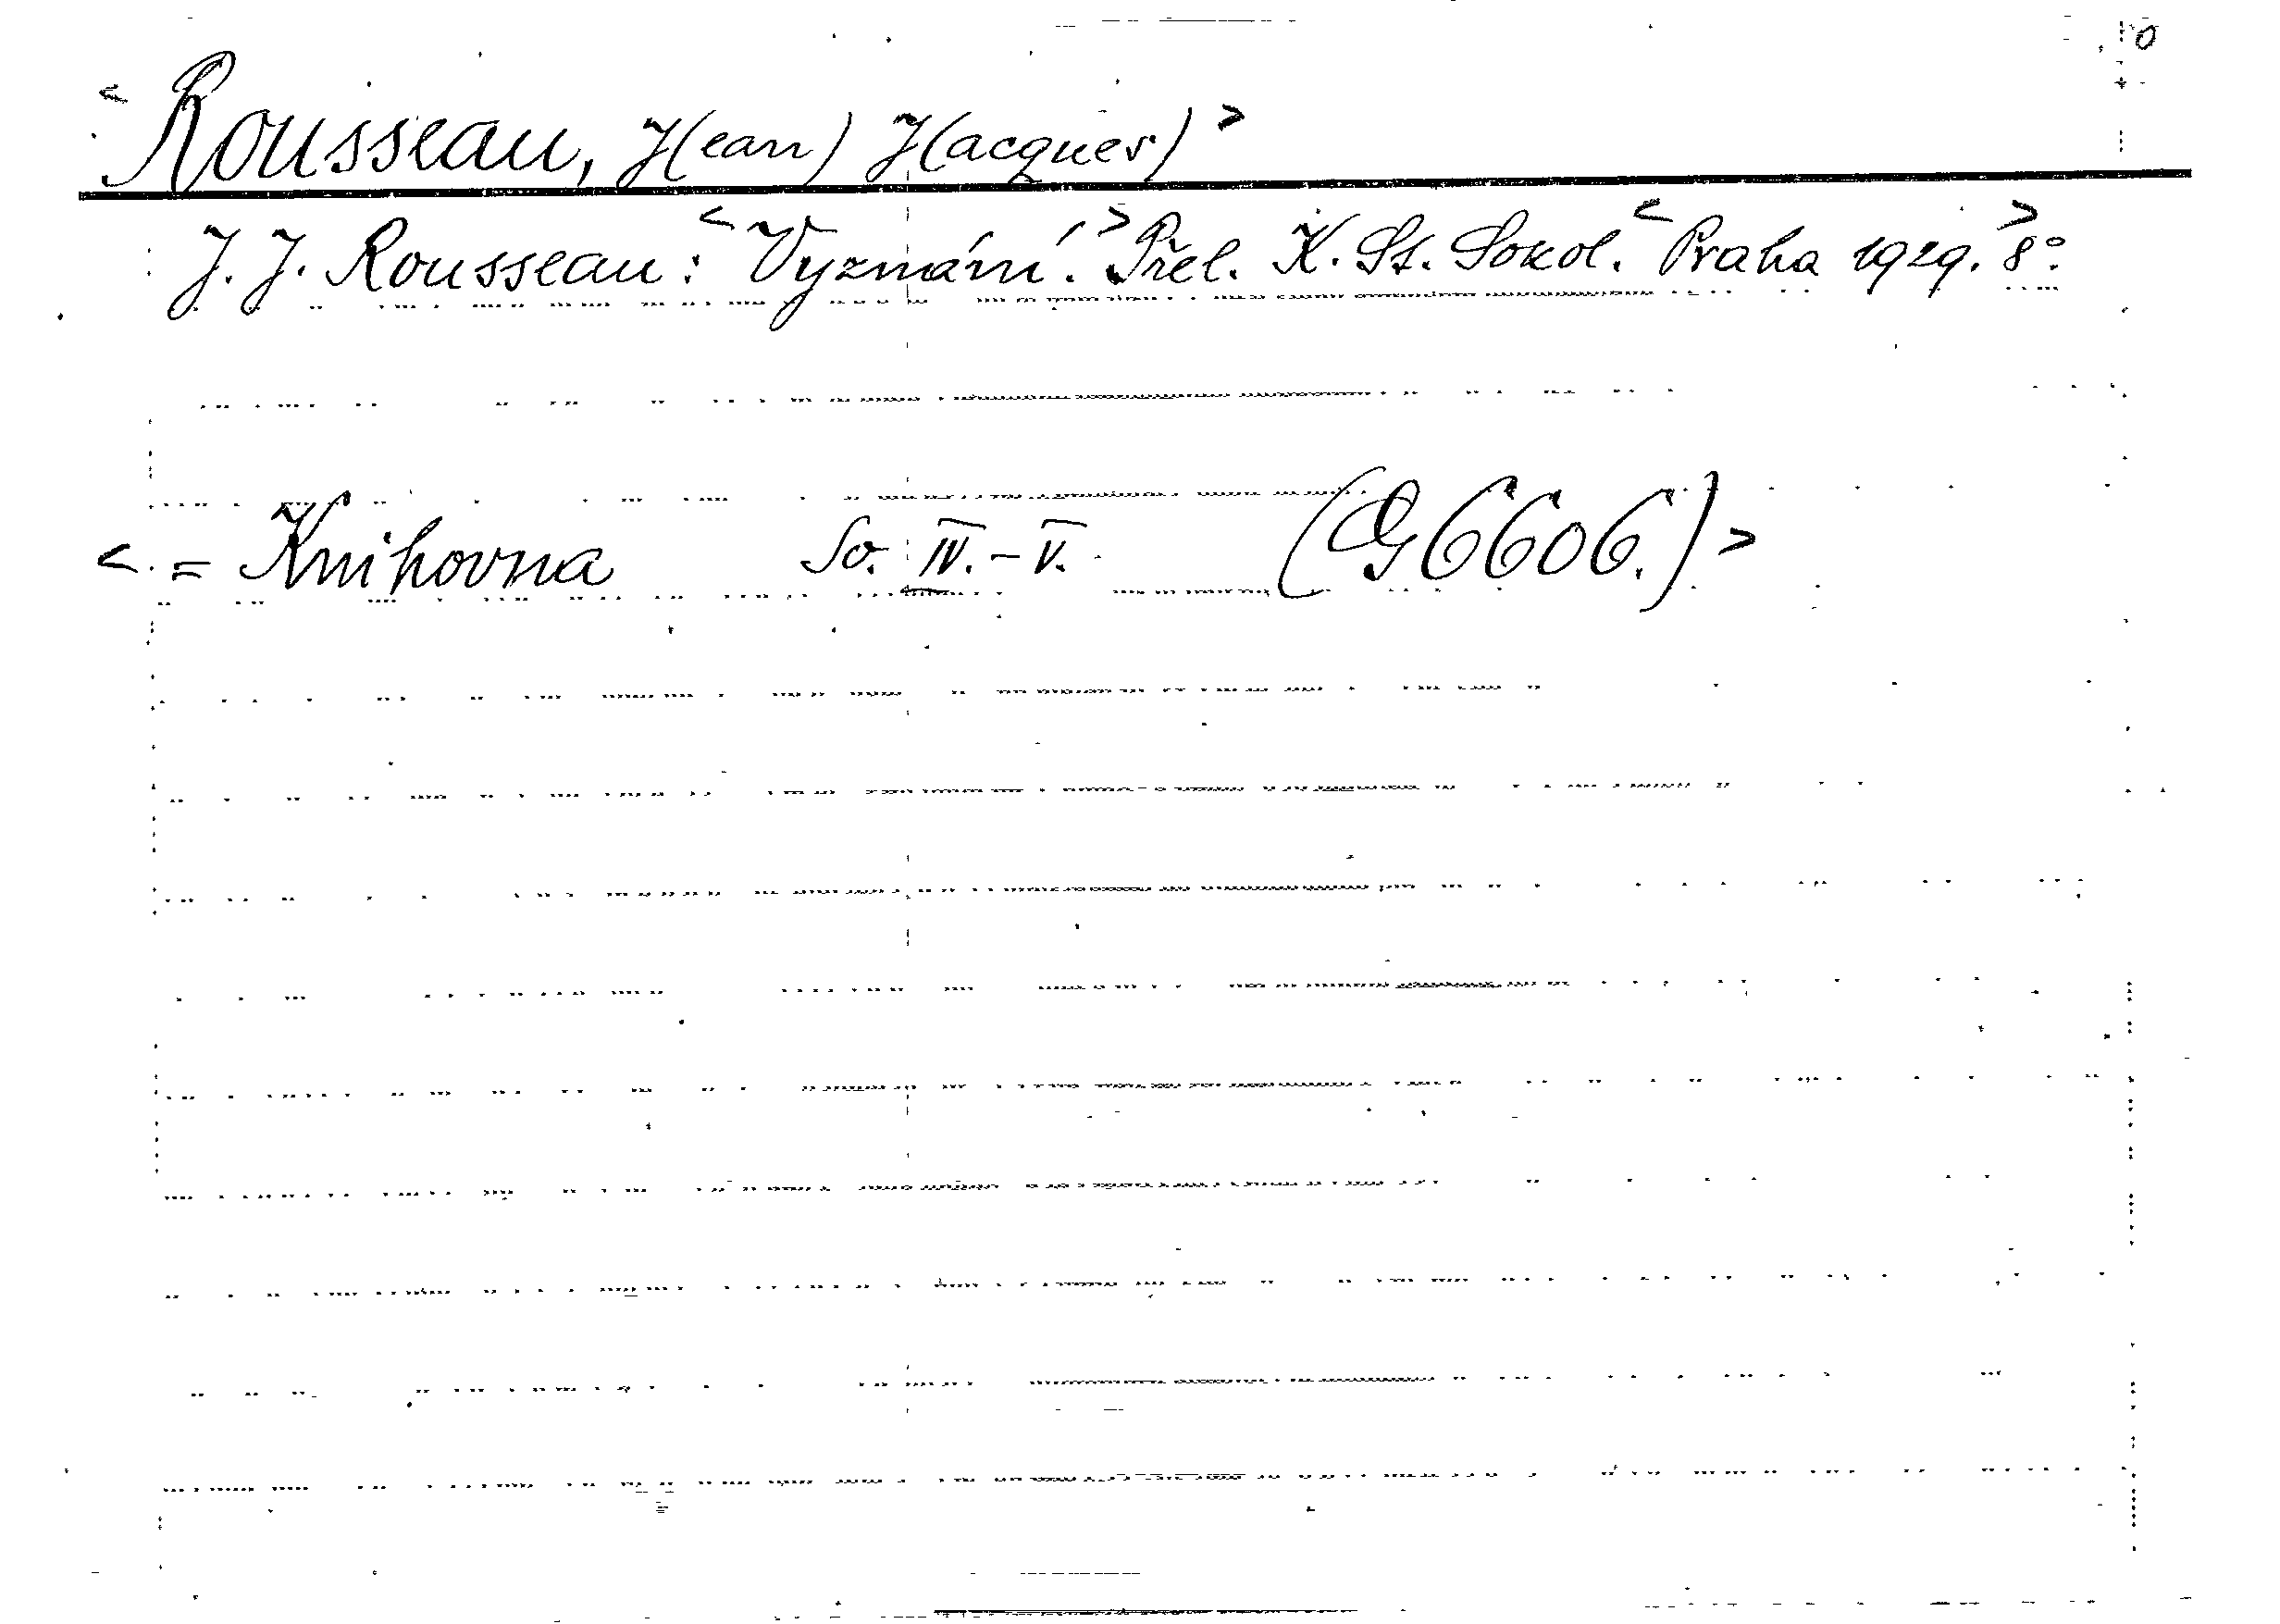 <Rousseau, J(ean) J(acques)>
J. J. Rousseau: <Vyznání.> Přel. K. St. Sokol. <Praha 1929.> 8°.
<. = Knihovna Sv. IV. – V. (G 6606.)>